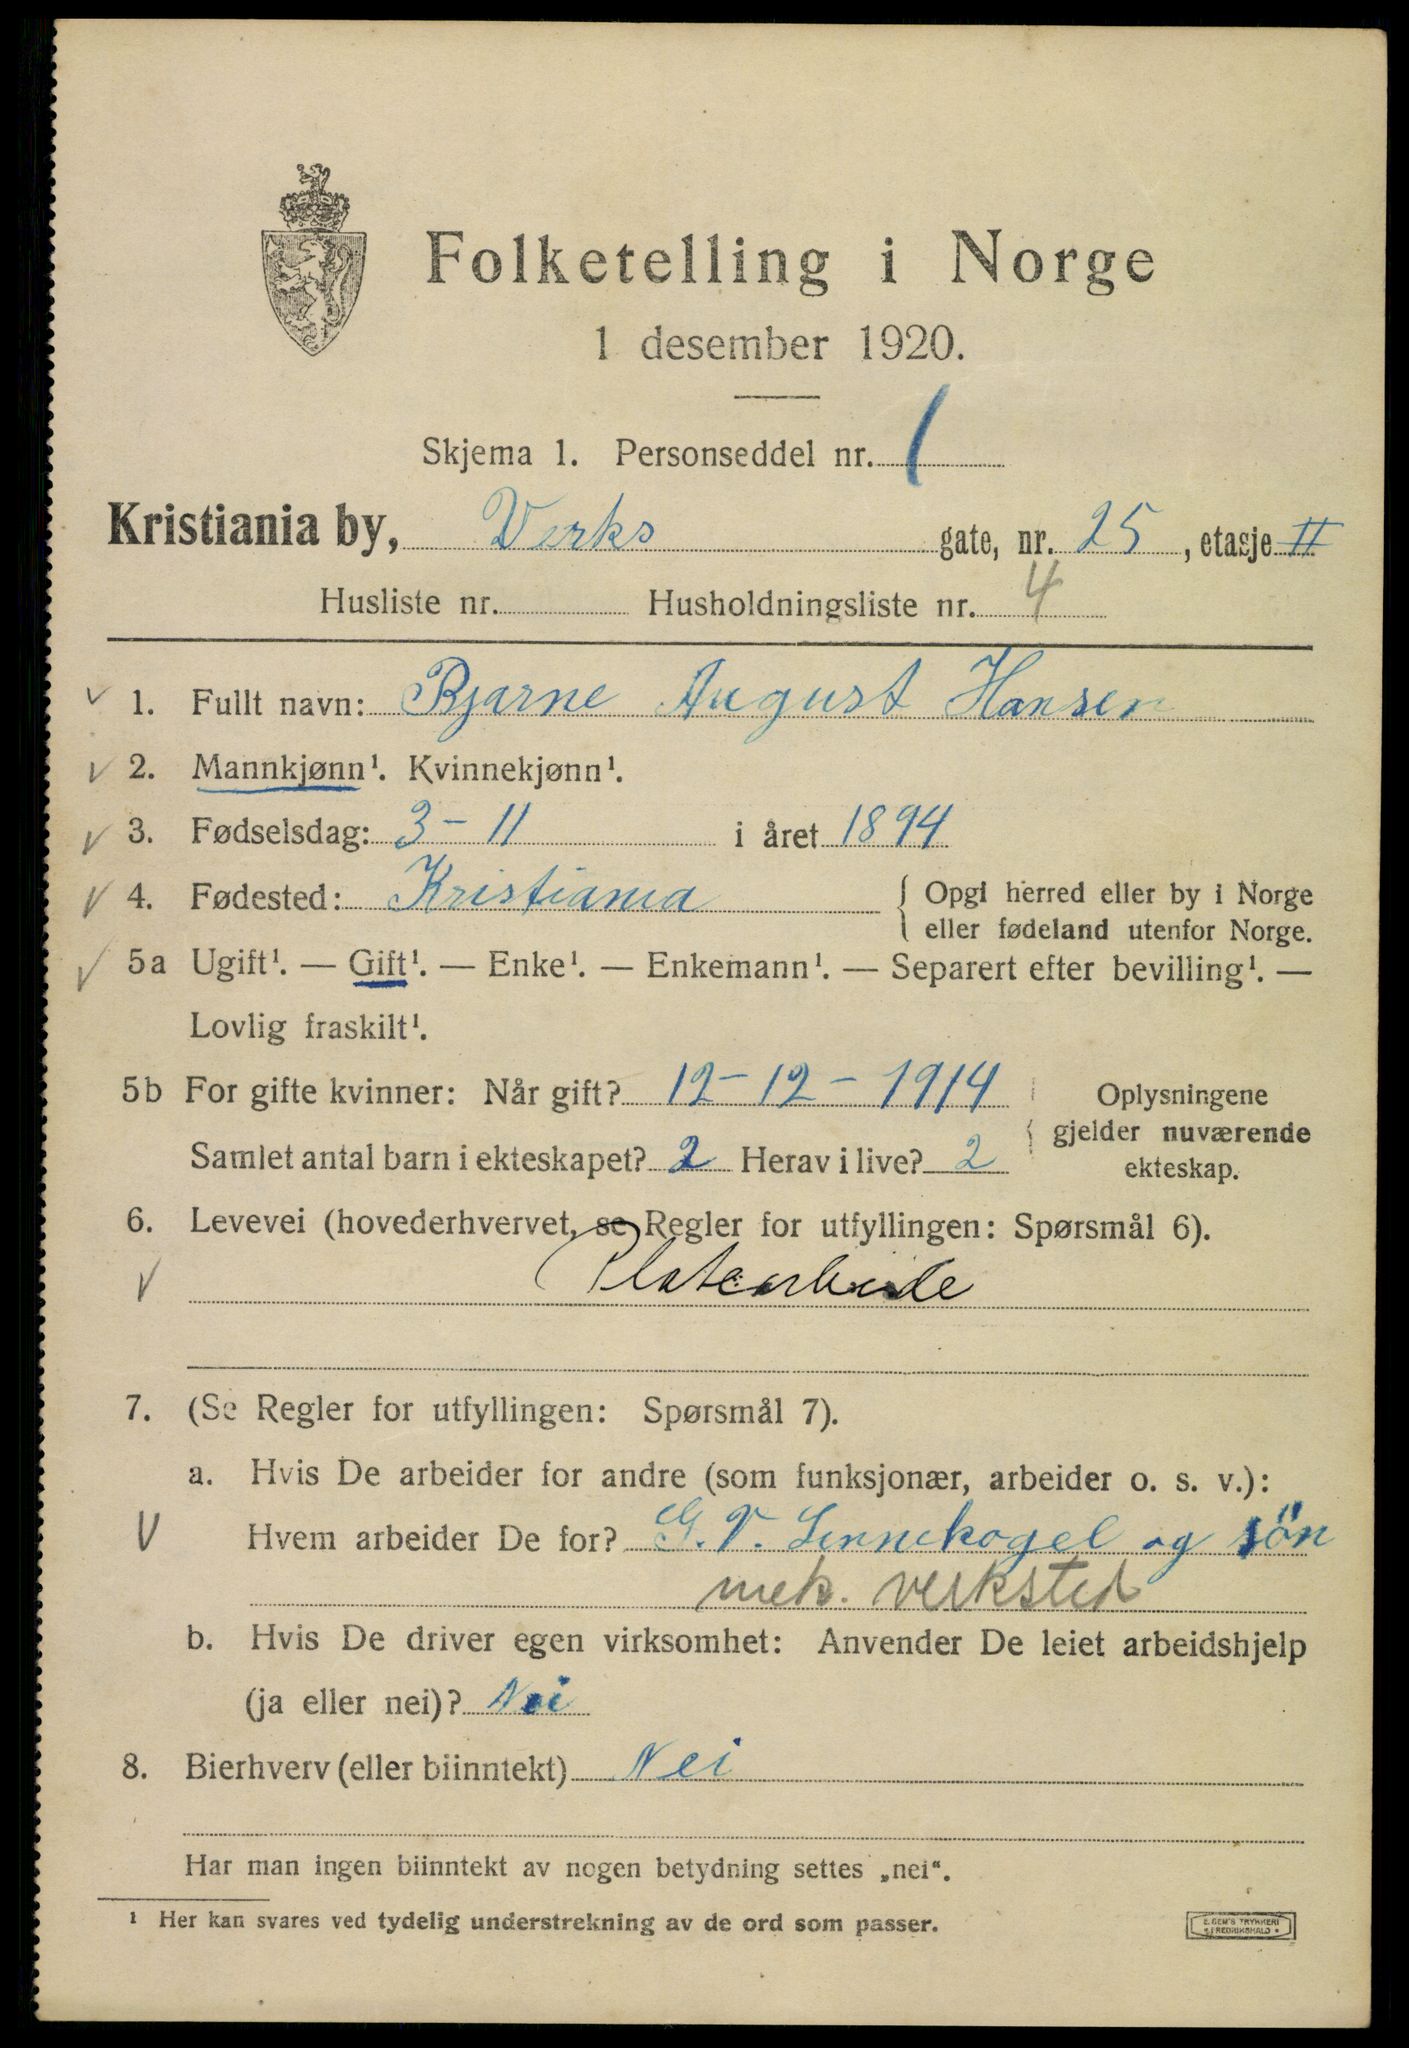 Folketelling i Norge
1 desember 1920.
Skjema 1. Personseddel nr. 1
Kristiania by, Verks gate, nr. 25, etasje II
Husliste nr. Husholdningsliste nr. 4
1. Fullt navn: Bjarne August Hansen
2. Mannkjønn¹. Kvinnekjønn¹.
3. Fødselsdag: 3-11 i året 1894
4. Fødested: Kristiania { Opgi herred eller by i Norge
eller fødeland utenfor Norge.
5a Ugift¹. — Gift¹. — Enke¹. — Enkemann¹. — Separert efter bevilling¹. —
Lovlig fraskilt¹.
5b For gifte kvinner: Når gift? 12-12-1914 { Oplysningene
gjelder nuværende
Samlet antal barn i ekteskapet? 2 Herav i live? 2
ekteskap.
6. Levevei (hovederhvervet, se Regler for utfyllingen: Spørsmål 6).
Platearbeide
7. (Se Regler for utfyllingen: Spørsmål 7).
a. Hvis De arbeider for andre (som funksjonær, arbeider o. s. v.):
Hvem arbeider De for? G. V. og sön
mek. verksted
b. Hvis De driver egen virksomhet: Anvender De leiet arbeidshjelp
(ja eller nei)? Nei
8. Bierhverv (eller biinntekt) Nei
Har man ingen biinntekt av nogen betydning settes „nei“.
¹ Her kan svares ved tydelig understrekning av de ord som passer.
E. GEM'S TRYKKERI
FREDRIKSHALD